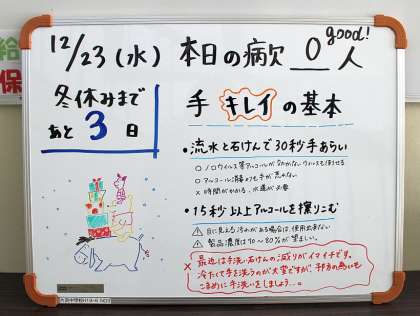 給
保
12/23(水) 本日の病欠 0人
good!
冬休みまで
あと 3 日
手 キレイ の基本
・流水と石けんで30秒手あらい
○ ノロウイルス等アルコールが効かないウイルスも落とせる
○ アルコール消毒よりも手が荒れない
× 時間がかかる、水道が必要
・15秒以上アルコールを擦りこむ
⚠ 目に見える汚れがある場合は、使用出来ない
⚠ 製品濃度は70~80%が望ましい。
× 最近は手洗い石けんの減りがイマイチです。
冷たくて手を洗うのが大変ですが、予防の為にも
こまめに手洗いをしましょう…。